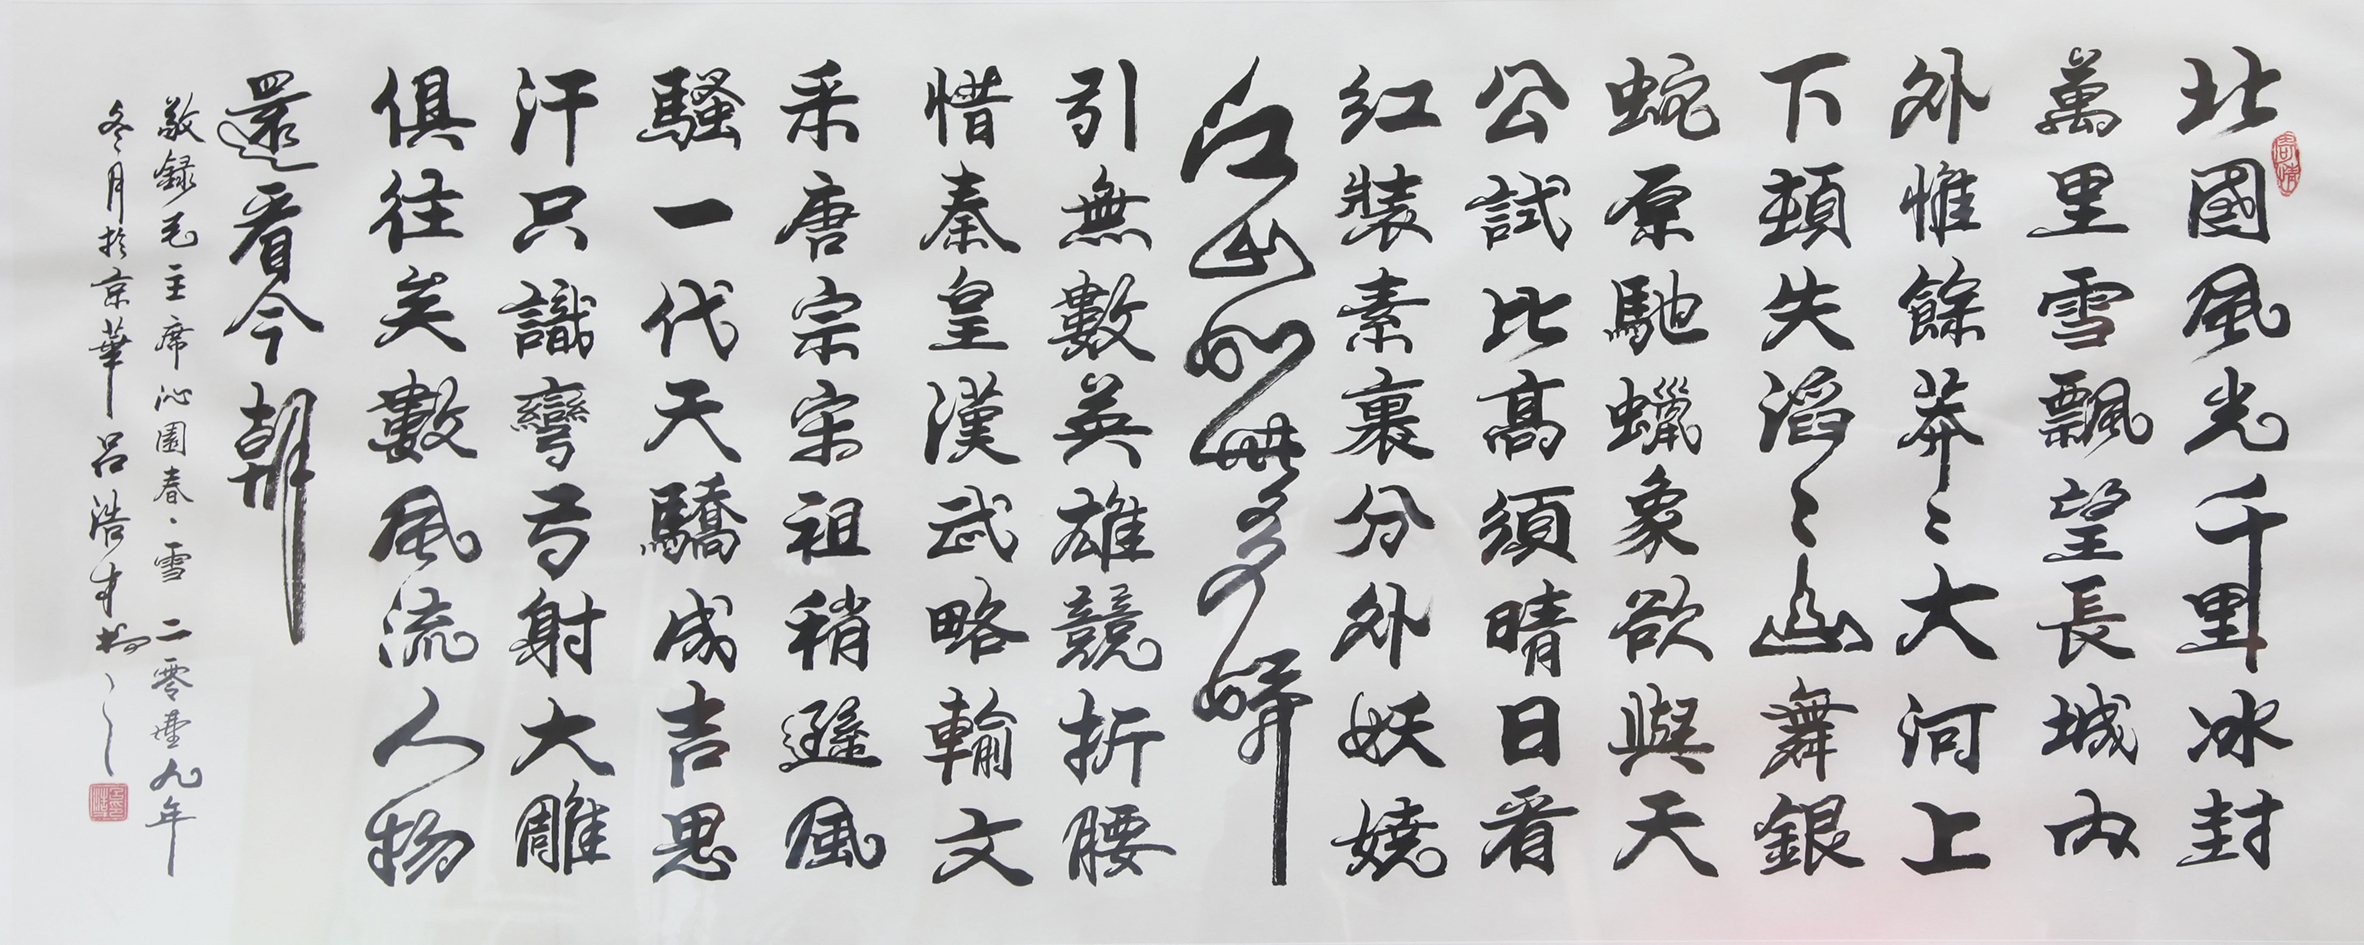 北國風光千里冰封
萬里雪飄望長城内
外惟餘莽〻大河上
下頓失滔〻山舞銀
蛇原馳蠟象欲與天
公試比高須晴日看
紅裝素裹分外妖嬈
江山如此多嬌
引無數英雄競折腰
惜秦皇漢武略輸文
采唐宗宋祖稍遜風
騷一代天驕成吉思
汗只識彎弓射大雕
俱往矣數風流人物
還看今朝
敬録毛主席沁園春·雪 二零壹九年
冬月於京華呂浩